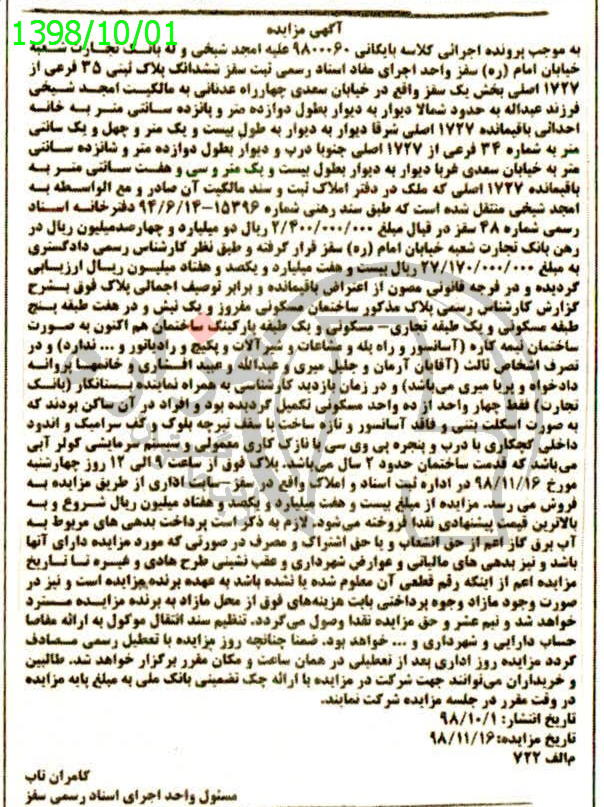 1398/10/01
آگهی مزایده
به موجب پرونده اجرائی کلاسه بایگانی ۹۸۰۰۰۶۰ علیه امجد شیخی و له بانک تجارت شعبه
خیابان امام (ره) سقز واحد اجرای مفاد اسناد رسمی ثبت سقز ششدانگ پلاک ثبتی ۳۵ فرعی از
۱۷۲۷ اصلی بخش یک سقز واقع در خیابان سعدی چهارراه عدنانی به مالکیت امجد شیخی
فرزند عبداله به حدود شمالا دیوار به دیوار بطول دوازده متر و پانزده سانتی متر به خانه
احداثی باقیمانده ۱۷۲۷ اصلی شرقا دیوار به دیوار به طول بیست و یک متر و چهل و یک سانتی
متر به شماره ۳۴ فرعی از ۱۷۲۷ اصلی جنوبا درب و دیوار بطول دوازده متر و شانزده سانتی
متر به خیابان سعدی غربا دیوار به دیوار بطول بیست و یک متر و سی و هفت سانتی متر به
باقیمانده ۱۷۲۷ اصلی که ملک در دفتر املاک ثبت و سند مالکیت آن صادر و مع الواسطه به
امجد شیخی منتقل شده است که طبق سند رهنی شماره ۱۵۳۹۶-۹۴/۶/۱۴ دفترخانه اسناد
رسمی شماره ۴۸ سقز در قبال مبلغ ۲/۴۰۰/۰۰۰/۰۰۰ ریال دو میلیارد و چهارصدمیلیون ریال در
رهن بانک تجارت شعبه خیابان امام (ره) سقز قرار گرفته و طبق نظر کارشناس رسمی دادگستری
به مبلغ ۲۷/۱۷۰/۰۰۰/۰۰۰ ریال بیست و هفت میلیارد و یکصد و هفتاد میلیون ریال ارزیابی
گردیده و در فرجه قانونی مصون از اعتراض باقیمانده و برابر توصیف اجمالی پلاک فوق بشرح
گزارش کارشناس رسمی پلاک مذکور ساختمان مسکونی مفروز و یک نبش و در هفت طبقه پنج
طبقه مسکونی و یک طبقه تجاری- مسکونی و یک طبقه پارکینگ ساختمان هم اکنون به صورت
ساختمان نیمه کاره (آسانسور و راه پله و مشاعات و شیرآلات و پکیج و رادیاتور و ... ندارد) و در
تصرف اشخاص ثالث (آقایان آرمان و جلیل میری و عبدالله و عبید افشاری و خانمها پروانه
دادخواه و پریا میری می‌باشد) و در زمان بازدید کارشناسی به همراه نماینده بستانکار (بانک
تجارت) فقط چهار واحد از ده واحد مسکونی تکمیل گردیده بود و افراد در آن ساکن بودند که
به صورت اسکلت بتنی و فاقد آسانسور و تازه ساخت با سقف تیرچه بلوک و کف سرامیک و اندود
داخلی گچکاری با درب و پنجره پی وی سی با نازک کاری معمولی و سیستم سرمایشی کولر آبی
می‌باشد که قدمت ساختمان حدود ۲ سال می‌باشد. پلاک فوق از ساعت ۹ الی ۱۲ روز چهارشنبه
مورخ ۹۸/۱۱/۱۶ در اداره ثبت اسناد و املاک واقع در سقز-سایت اداری از طریق مزایده به
فروش می رسد. مزایده از مبلغ بیست و هفت میلیارد و یکصد و هفتاد میلیون ریال شروع و به
بالاترین قیمت پیشنهادی نقدا فروخته می‌شود. لازم به ذکر است پرداخت بدهی های مربوط به
آب برق گاز اعم از حق انشعاب و یا حق اشتراک و مصرف در صورتی که مورد مزایده دارای آنها
باشد و نیز بدهی های مالیاتی و عوارض شهرداری و عقب نشینی طرح هادی و غیره تا تاریخ
مزایده اعم از اینکه رقم قطعی آن معلوم شده یا نشده باشد به عهده برنده مزایده است و نیز در
صورت وجود مازاد وجوه پرداختی بابت هزینه‌های فوق از محل مازاد به برنده مزایده مسترد
خواهد شد و نیم عشر و حق مزایده نقدا وصول می‌گردد. تنظیم سند انتقال موکول به ارائه مفاصا
حساب دارایی و شهرداری و ... خواهد بود. ضمنا چنانچه روز مزایده با تعطیل رسمی مصادف
گردد مزایده روز اداری بعد از تعطیلی در همان ساعت و مکان مقرر برگزار خواهد شد. طالبین
و خریداران می‌توانند جهت شرکت در مزایده با ارائه چک تضمینی بانک ملی به مبلغ پایه مزایده
در وقت مقرر در جلسه مزایده شرکت نمایند.
تاریخ انتشار: ۹۸/۱۰/۱
تاریخ مزایده: ۹۸/۱۱/۱۶
م‌الف ۷۲۲
کامران تاب
مسئول واحد اجرای اسناد رسمی سقز